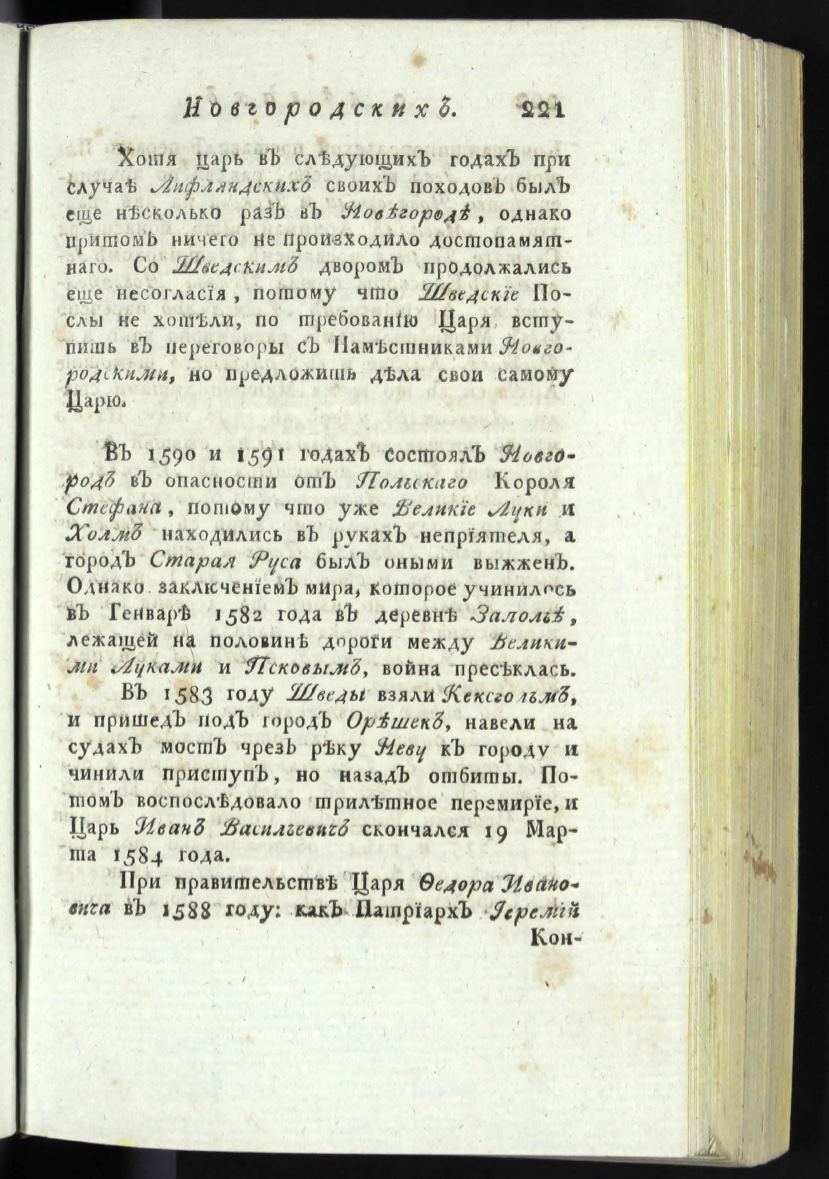 Новгородскихъ. 221
Хотя царь въ слѣдующихъ годахъ при
случаѣ Лифляндскихъ своихъ походовъ былъ
еще нѣсколько разъ въ Новѣгородѣ, однако
притомъ ничего не произходило достопамят-
наго. Со Шведскимъ дворомъ продолжались
еще несогласїя, потому что Шведскїе По-
слы не хотѣли, по требованїю Царя вступ-
пить въ переговоры съ Намѣстниками Новго-
родскими, но предложить дѣла свои самому
Царю.
Въ 1590 и 1591 годахъ состоялъ Новго-
родъ въ опасности отъ Польскаго Короля
Стефана, потому что уже Великїе Луки и
Холмъ находились въ рукахъ непрїятеля, а
городъ Старая Руса былъ оными выжженъ.
Однако заключенїемъ мира, которое учинилось
въ Генварѣ 1582 года въ деревнѣ Запольѣ,
лежащей на половинѣ дороги между Велики-
ми Луками и Псковымъ, война пресѣклась.
Въ 1583 году Шведы взяли Кексгольмъ,
и пришедъ подъ городъ Орѣшекъ, навели на
судахъ мостъ чрезъ рѣку Неву къ городу и
чинили приступъ, но назадъ отбиты. По-
томъ воспослѣдовало трилѣтное перемирїе, и
Царь Иванъ Васильевичъ скончался 19 Мар-
та 1584 года.
При правительствѣ Царя Ѳедора Ивано-
вича въ 1588 году: какъ Патрїархъ Іеремїй
Кон-